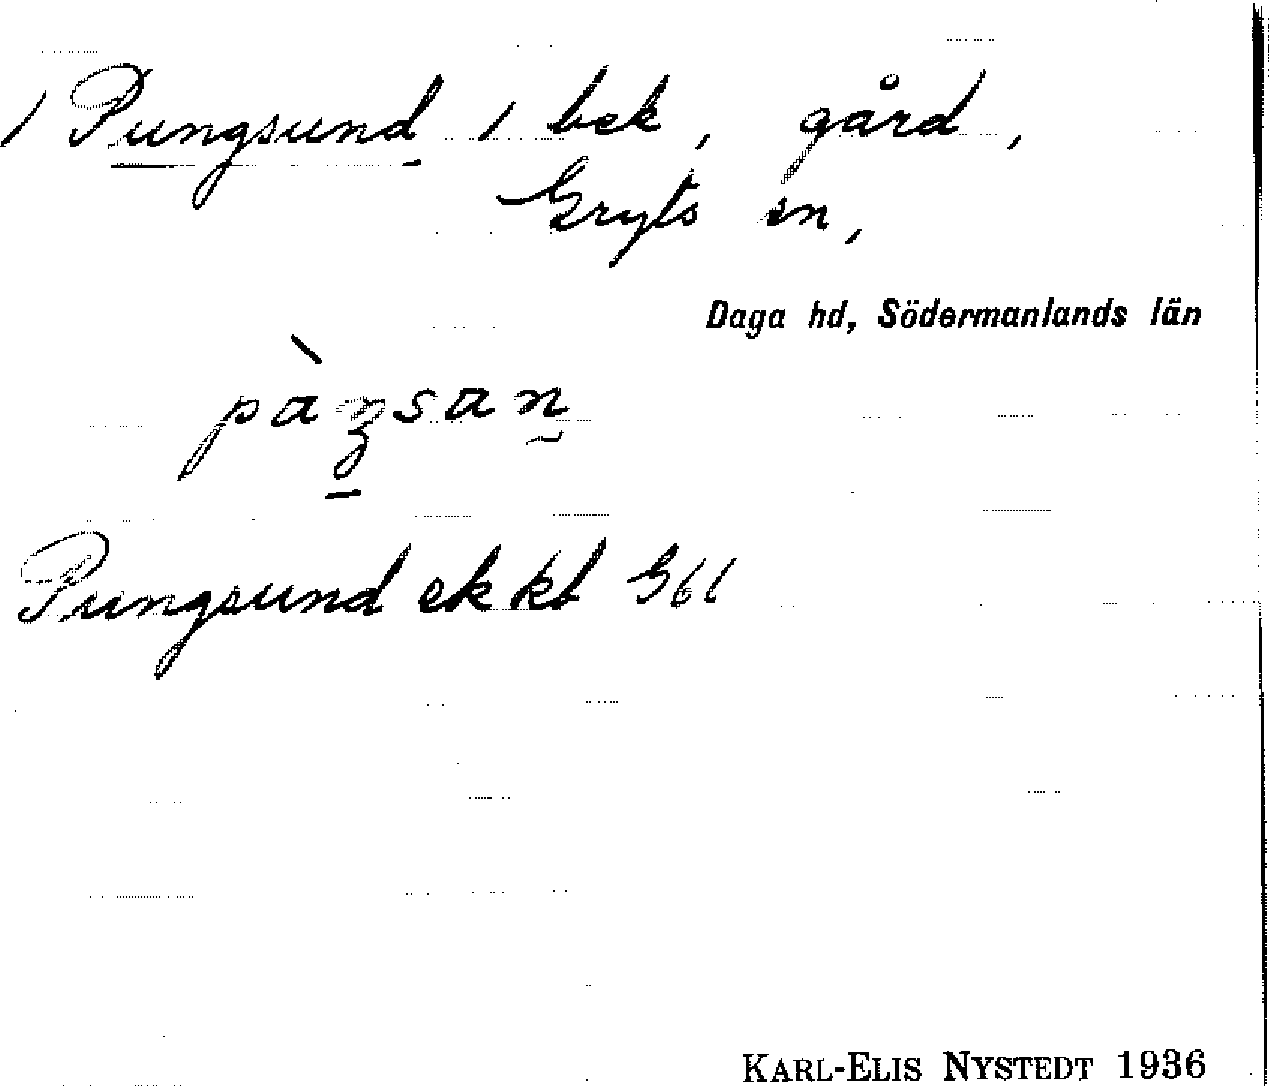 / Pungsund / bek, gård,
Gryts sn,
Daga hd, Södermanlands län
pàŋsan
Pungsund ek kt G61
KARL-ELIS NYSTEDT 1936